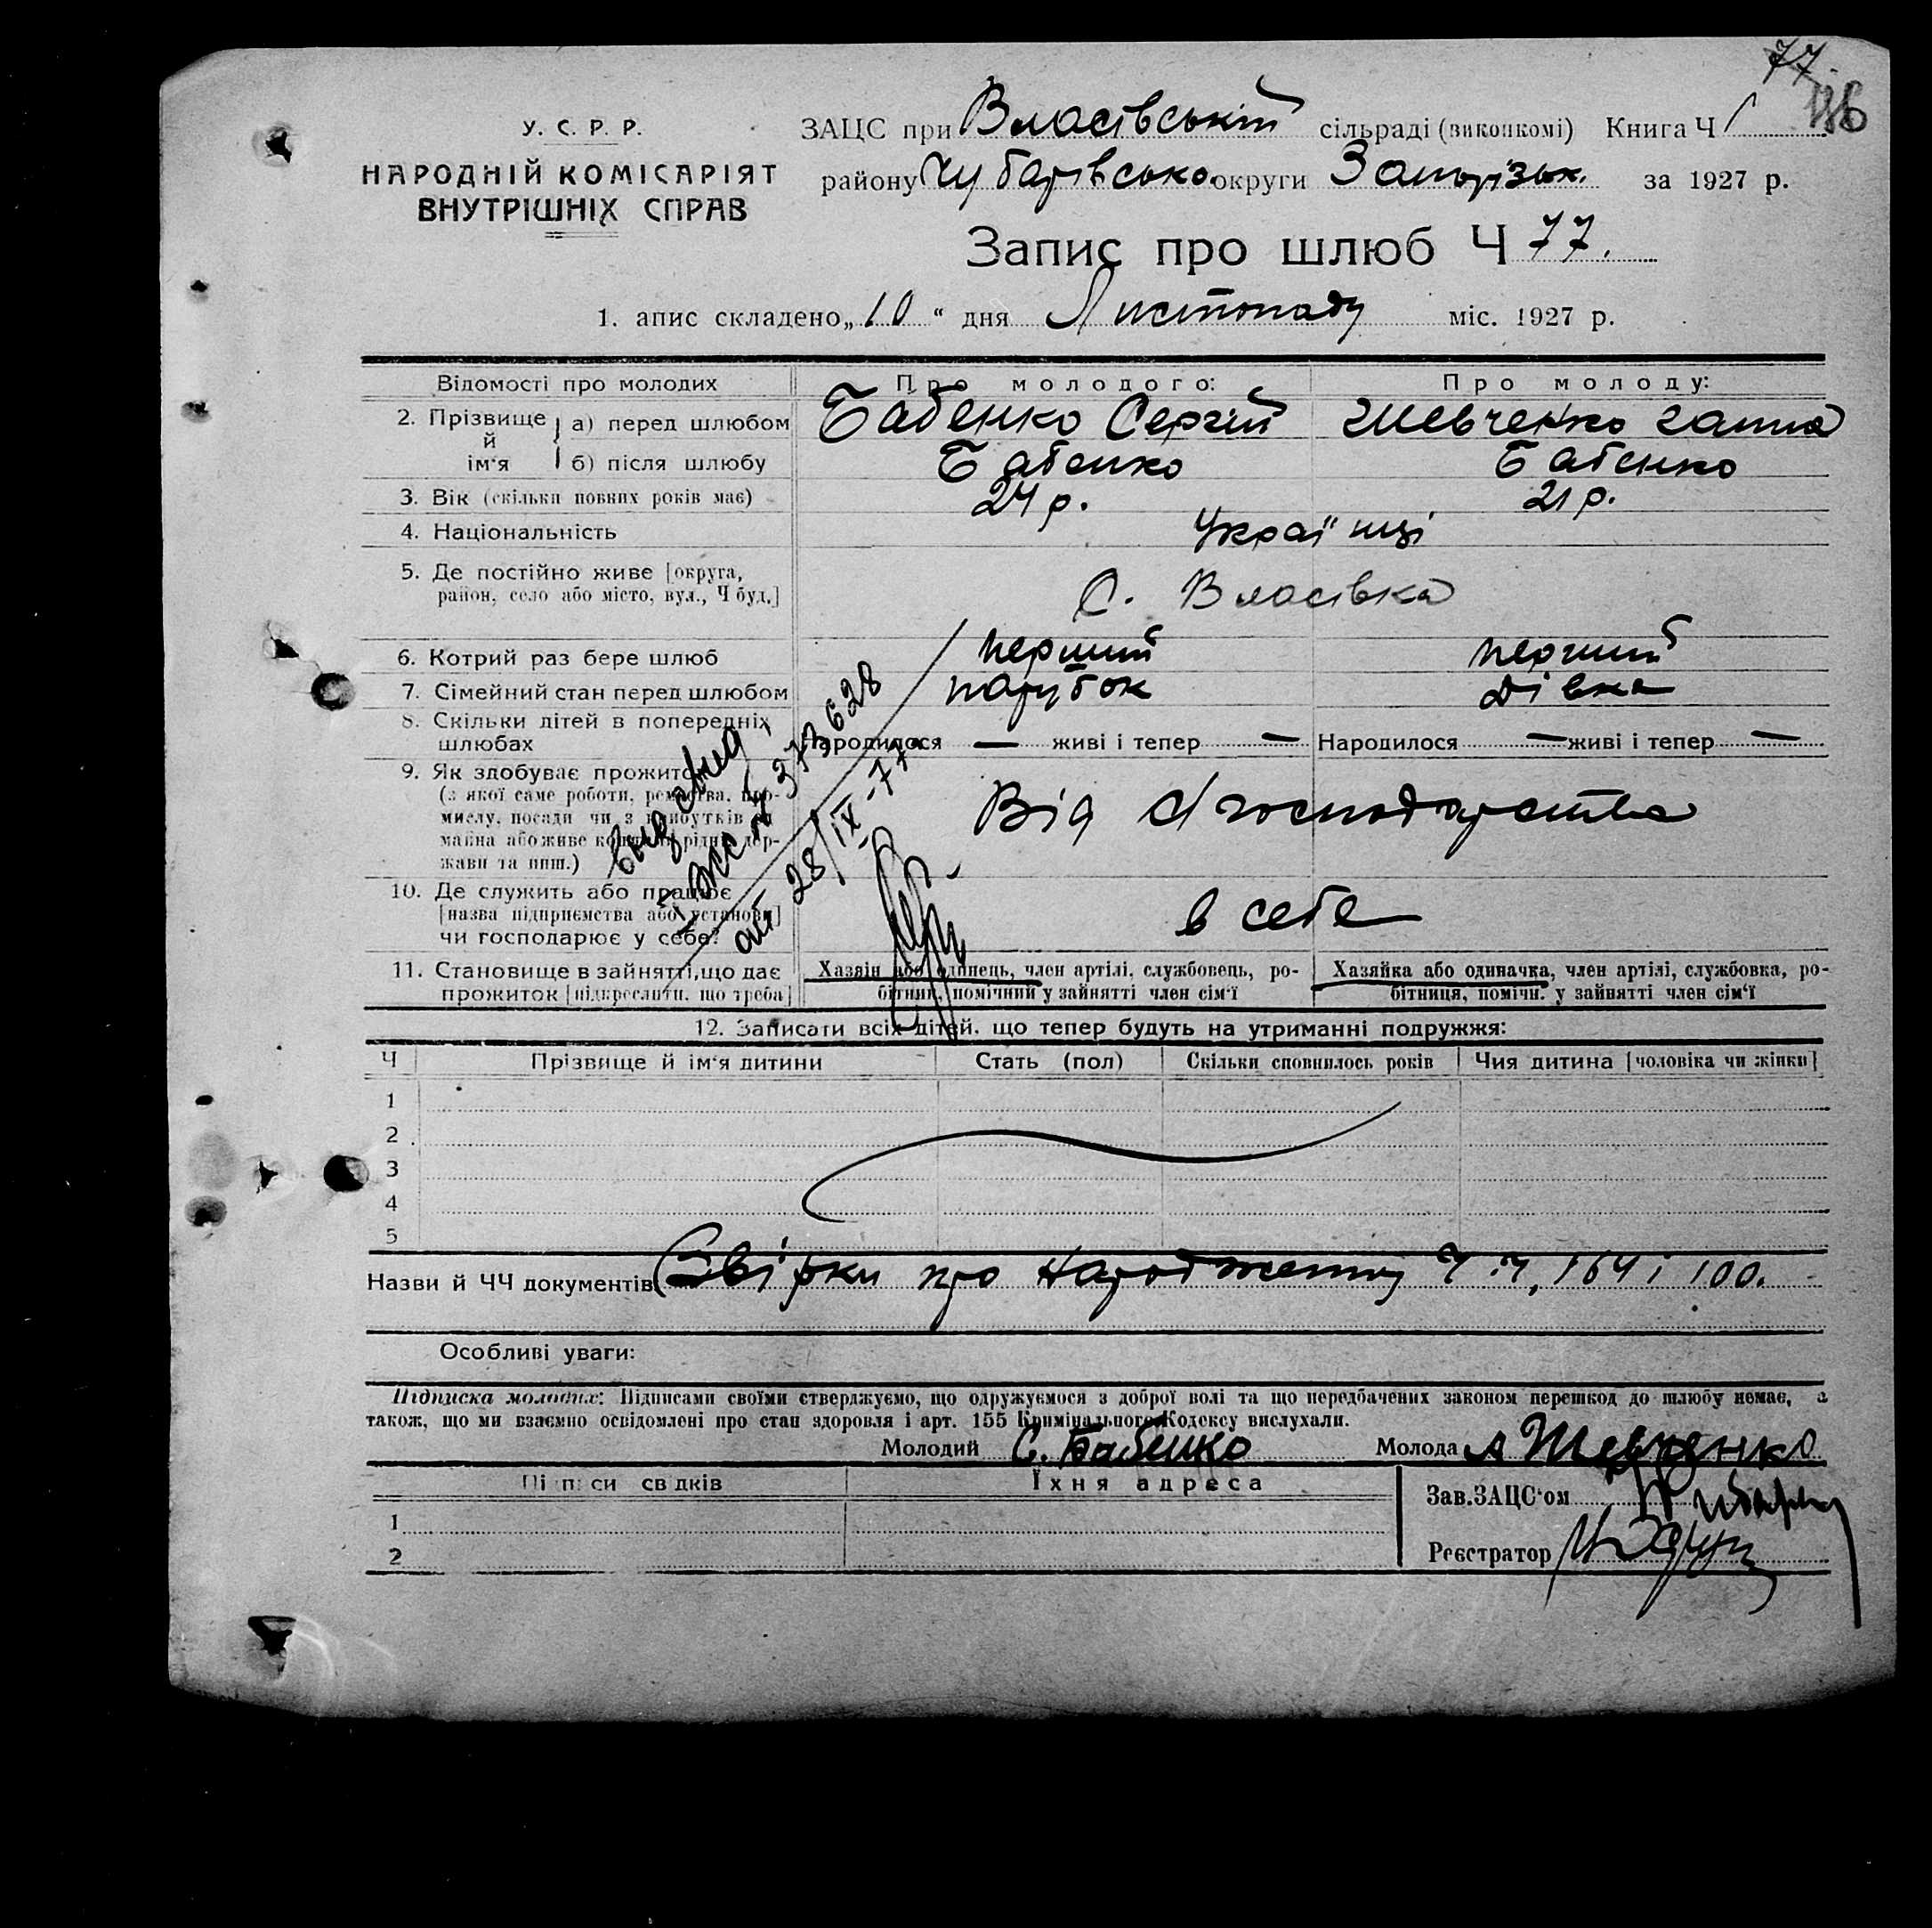 77
У. С. Р. Р.
НАРОДНІЙ КОМІСАРІЯТ
ВНУТРІШНІХ СПРАВ
ЗАЦС при Власівській сільраді (виконкомі) Книга Ч 1
району Чубарівсько. округи Запорізьк. за 1927 р.
Запис про шлюб Ч 77.
1. апис складено „10“ дня Листопаду міс. 1927 р.
Відомості про молодих Про молодого: Про молоду:
2. Прізвище й ім'я а) перед шлюбом Бабенко Сергій Шевченко Ганна
б) після шлюбу Бабенко Бабенко
3. Вік (скільки повних років має) 24 р. 21 р.
4. Національність Українці
5. Де постійно живе [округа,
район, село або місто, вул., Ч буд.] С. Власівка
6. Котрий раз бере шлюб перший перший
7. Сімейний стан перед шлюбом парубок дівка
8. Скільки дітей в попередніх
шлюбах Народилося — живі і тепер — Народилося — живі і тепер —
9. Як здобуває прожиток
(з якої саме роботи, ремества, про-
мислу, посади чи з прибутків
майна або живе рідні, дер-
жави та инш.) Від с/господарства
10. Де служить або працює
[назва підприємства або установи]
чи господарює у себе? в себе
11. Становище в зайнятті, що дає
прожиток [підкреслити, що треба]
Хазяїн або одинець, член артілі, службовець, ро-
бітник, помічний у зайнятті член сім'ї
Хазяйка або одиначка, член артілі, службовка, ро-
бітниця, помічн. у зайнятті член сім'ї
выд. свид.
I ЖС № 373628
от 28/IX-77г.
12. Записати всіх дітей, що тепер будуть на утриманні подружжя:
Ч Прізвище й ім'я дитини Стать (пол) Скільки сповнилось років Чия дитина [чоловіка чи жінки]
1
2
3
4
5
Назви й ЧЧ документів Свірки про народження Ч.Ч. 164 і 100.
Особливі уваги:
Підписка молодих: Підписами своїми стверджуємо, що одружуємося з доброї волі та що передбачених законом перешкод до шлюбу немає, а
також, що ми взаємно освідомлені про стан здоровля і арт. 155 Кримінального Кодексу вислухали.
Молодий С. Бабенко Молода А Шевченко
Підписи свідків Їхня адреса
Зав. ЗАЦС'ом
1
Реєстратор
2